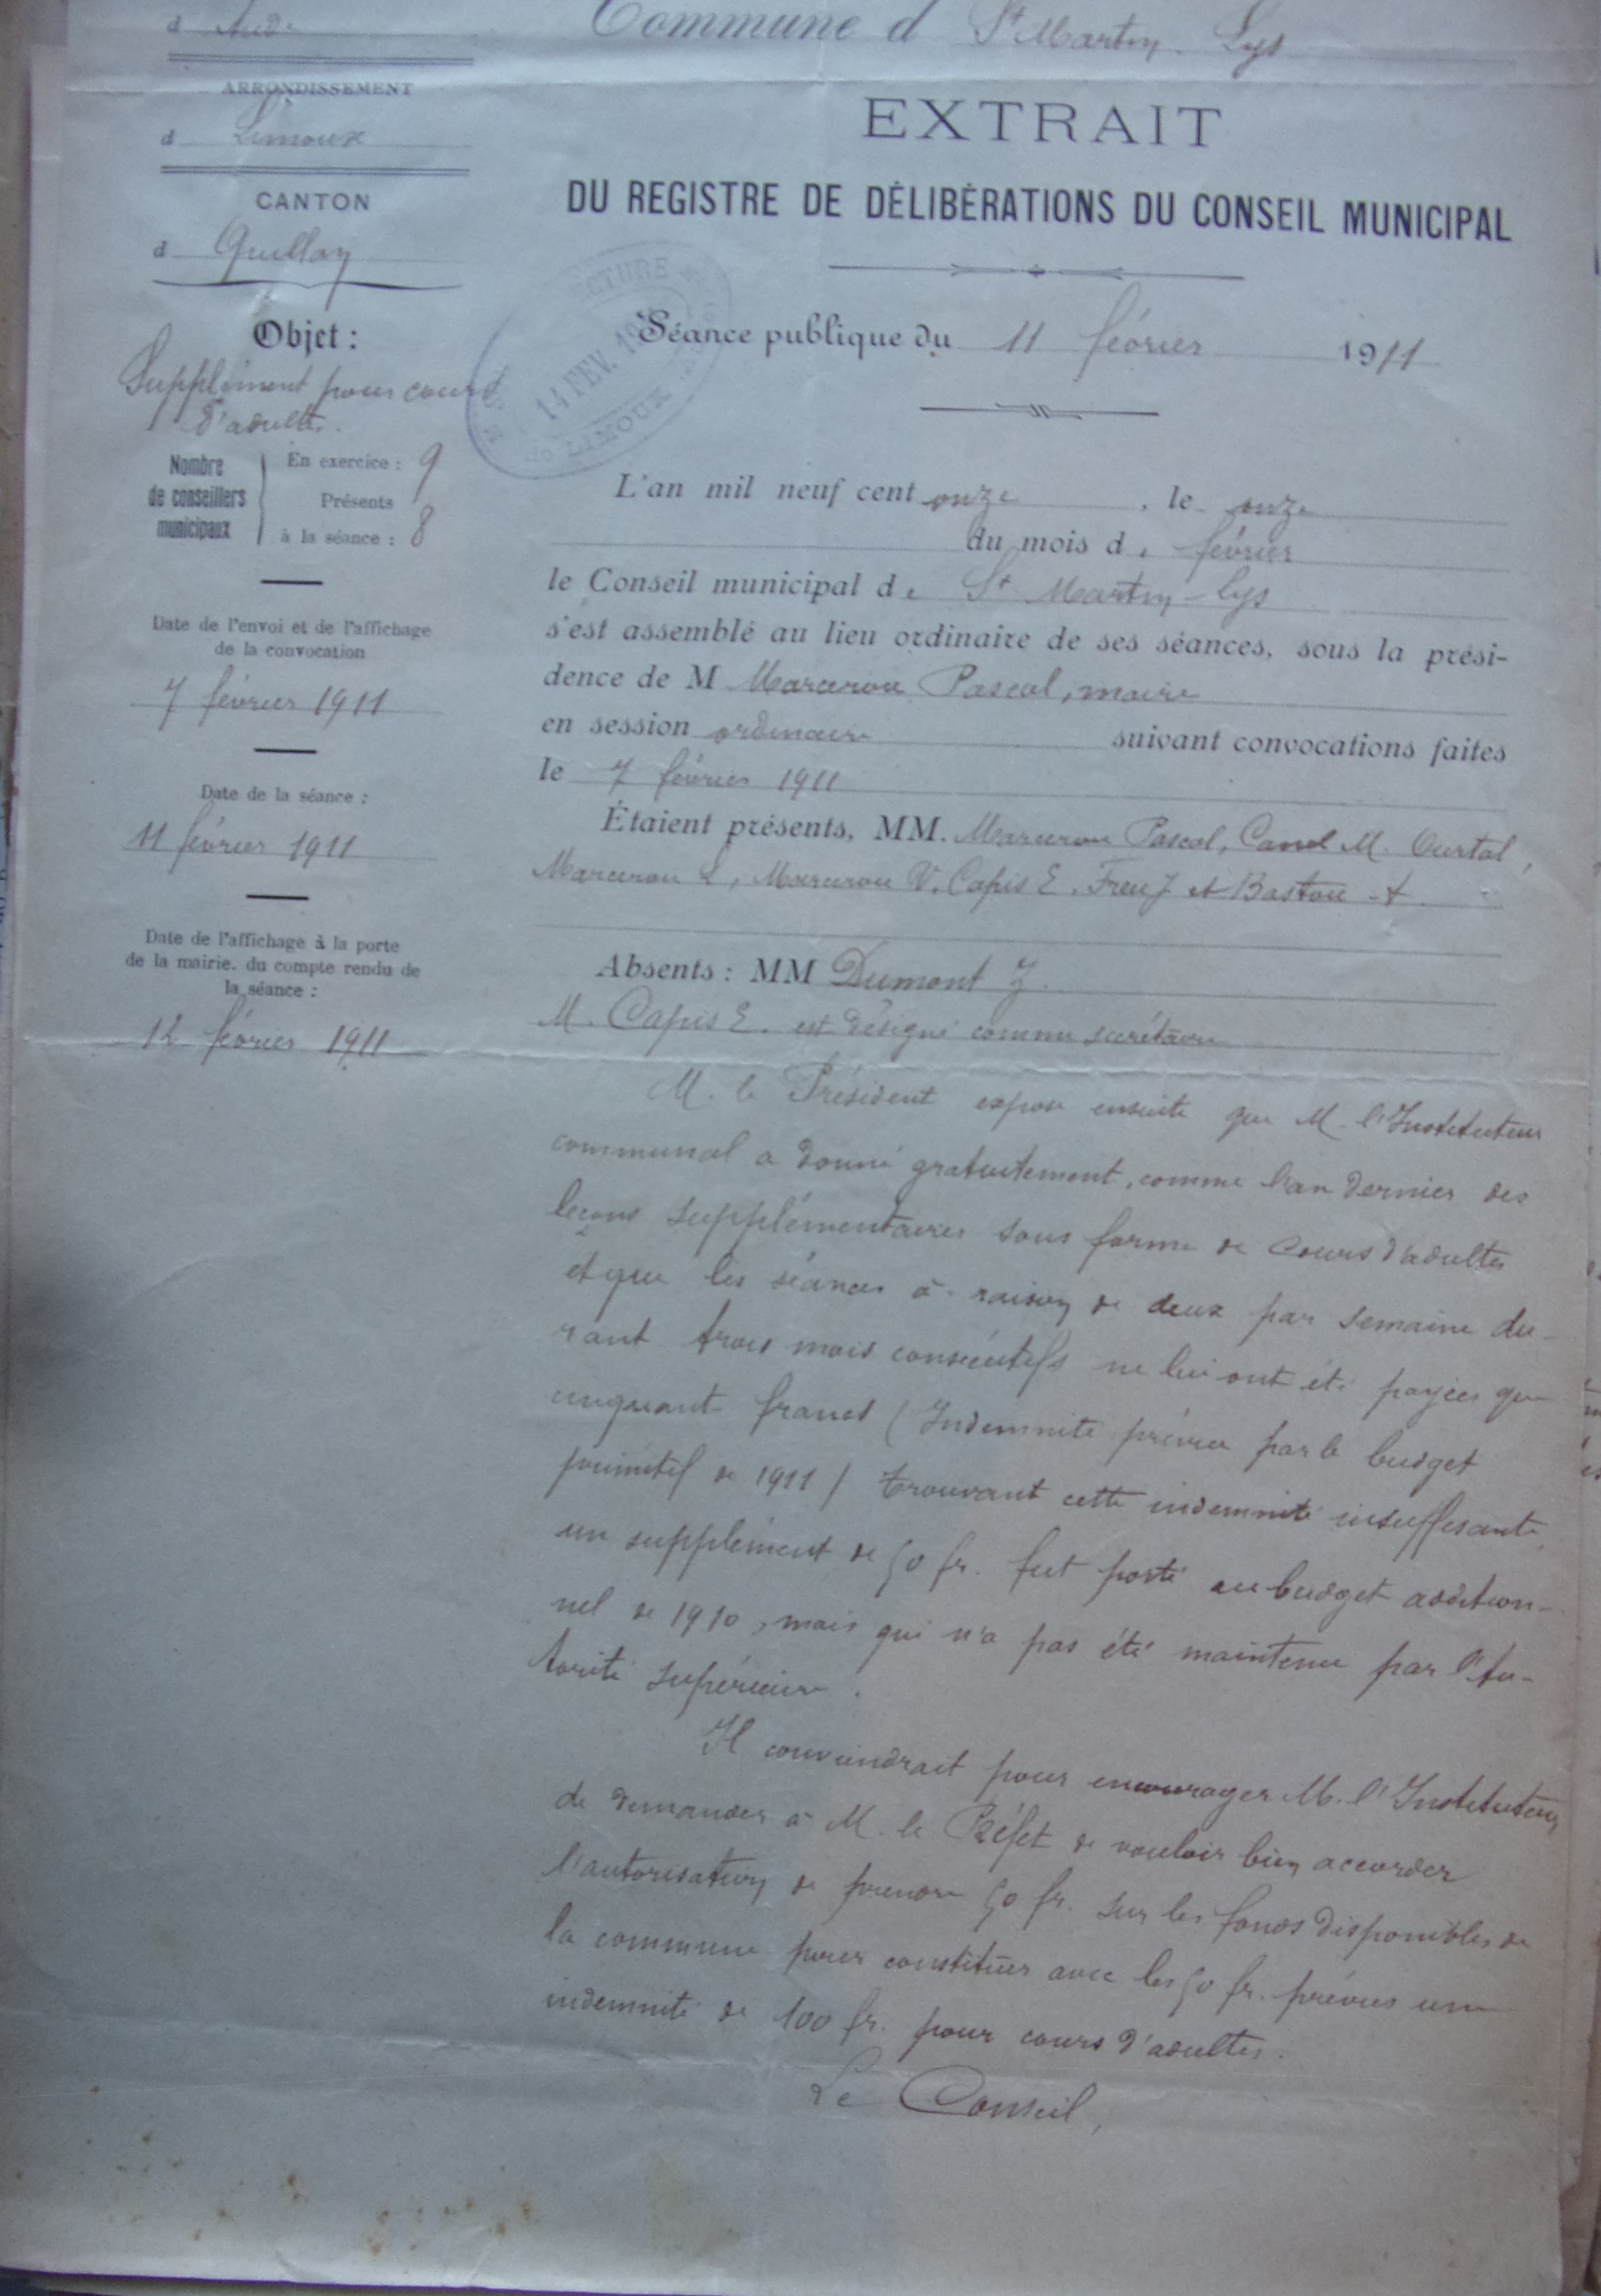 d Aude
ARRONDISSEMENT
d Limoux
CANTON
d Quillan
Objet :
Supplément pour cours
d'adultes.
Nombre
de conseillers
municipaux
En exercice : 9
Présents
à la séance : 8
Date de l'envoi et de l'affichage
de la convocation
7 février 1911
Date de la séance :
11 février 1911
Date de l'affichage à la porte
de la mairie, du compte rendu de
la séance :
12 février 1911
Commune d St Martin-Lys
EXTRAIT
DU REGISTRE DE DÉLIBÉRATIONS DU CONSEIL MUNICIPAL
ECTURE
14 FEV. 19
de LIMOUX
Séance publique du 11 février 1911
L'an mil neuf cent onze, le onze
du mois de février
le Conseil municipal de St Martin-Lys
s'est assemblé au lieu ordinaire de ses séances, sous la prési-
dence de M Marcerou Pascal, maire
en session ordinaire suivant convocations faites
le 7 février 1911
Étaient présents, MM. Marcerou Pascal, Canel M. Ourtal,
Marcerou L, Marcerou V, Capis E. Freu J et Bastou A
Absents : MM Dumont J.
M. Capis E. est désigné comme secrétaire
M. le Président expose ensuite que M. l'Instituteur
communal a donné gratuitement, comme l'an dernier des
leçons supplémentaires sous forme de Cours d'adultes
et que les séances à raison de deux par semaine du-
rant trois mois consécutifs ne lui ont été payées que
cinquante francs (Indemnité prévue par le budget
primitif de 1911) trouvant cette indemnité insuffisante,
un supplément de 50 fr. fut porté au budget addition-
nel de 1910, mais qui n'a pas été maintenu par l'Au-
torité supérieure.
Il conviendrait pour encourager M. l'Instituteur
de demander à M. le Préfet de vouloir bien accorder
l'autorisation de prendre 50 fr. sur les fonds disponibles de
la commune pour constituer avec les 50 fr. prévus une
indemnité de 100 fr. pour cours d'adultes.
Le Conseil,